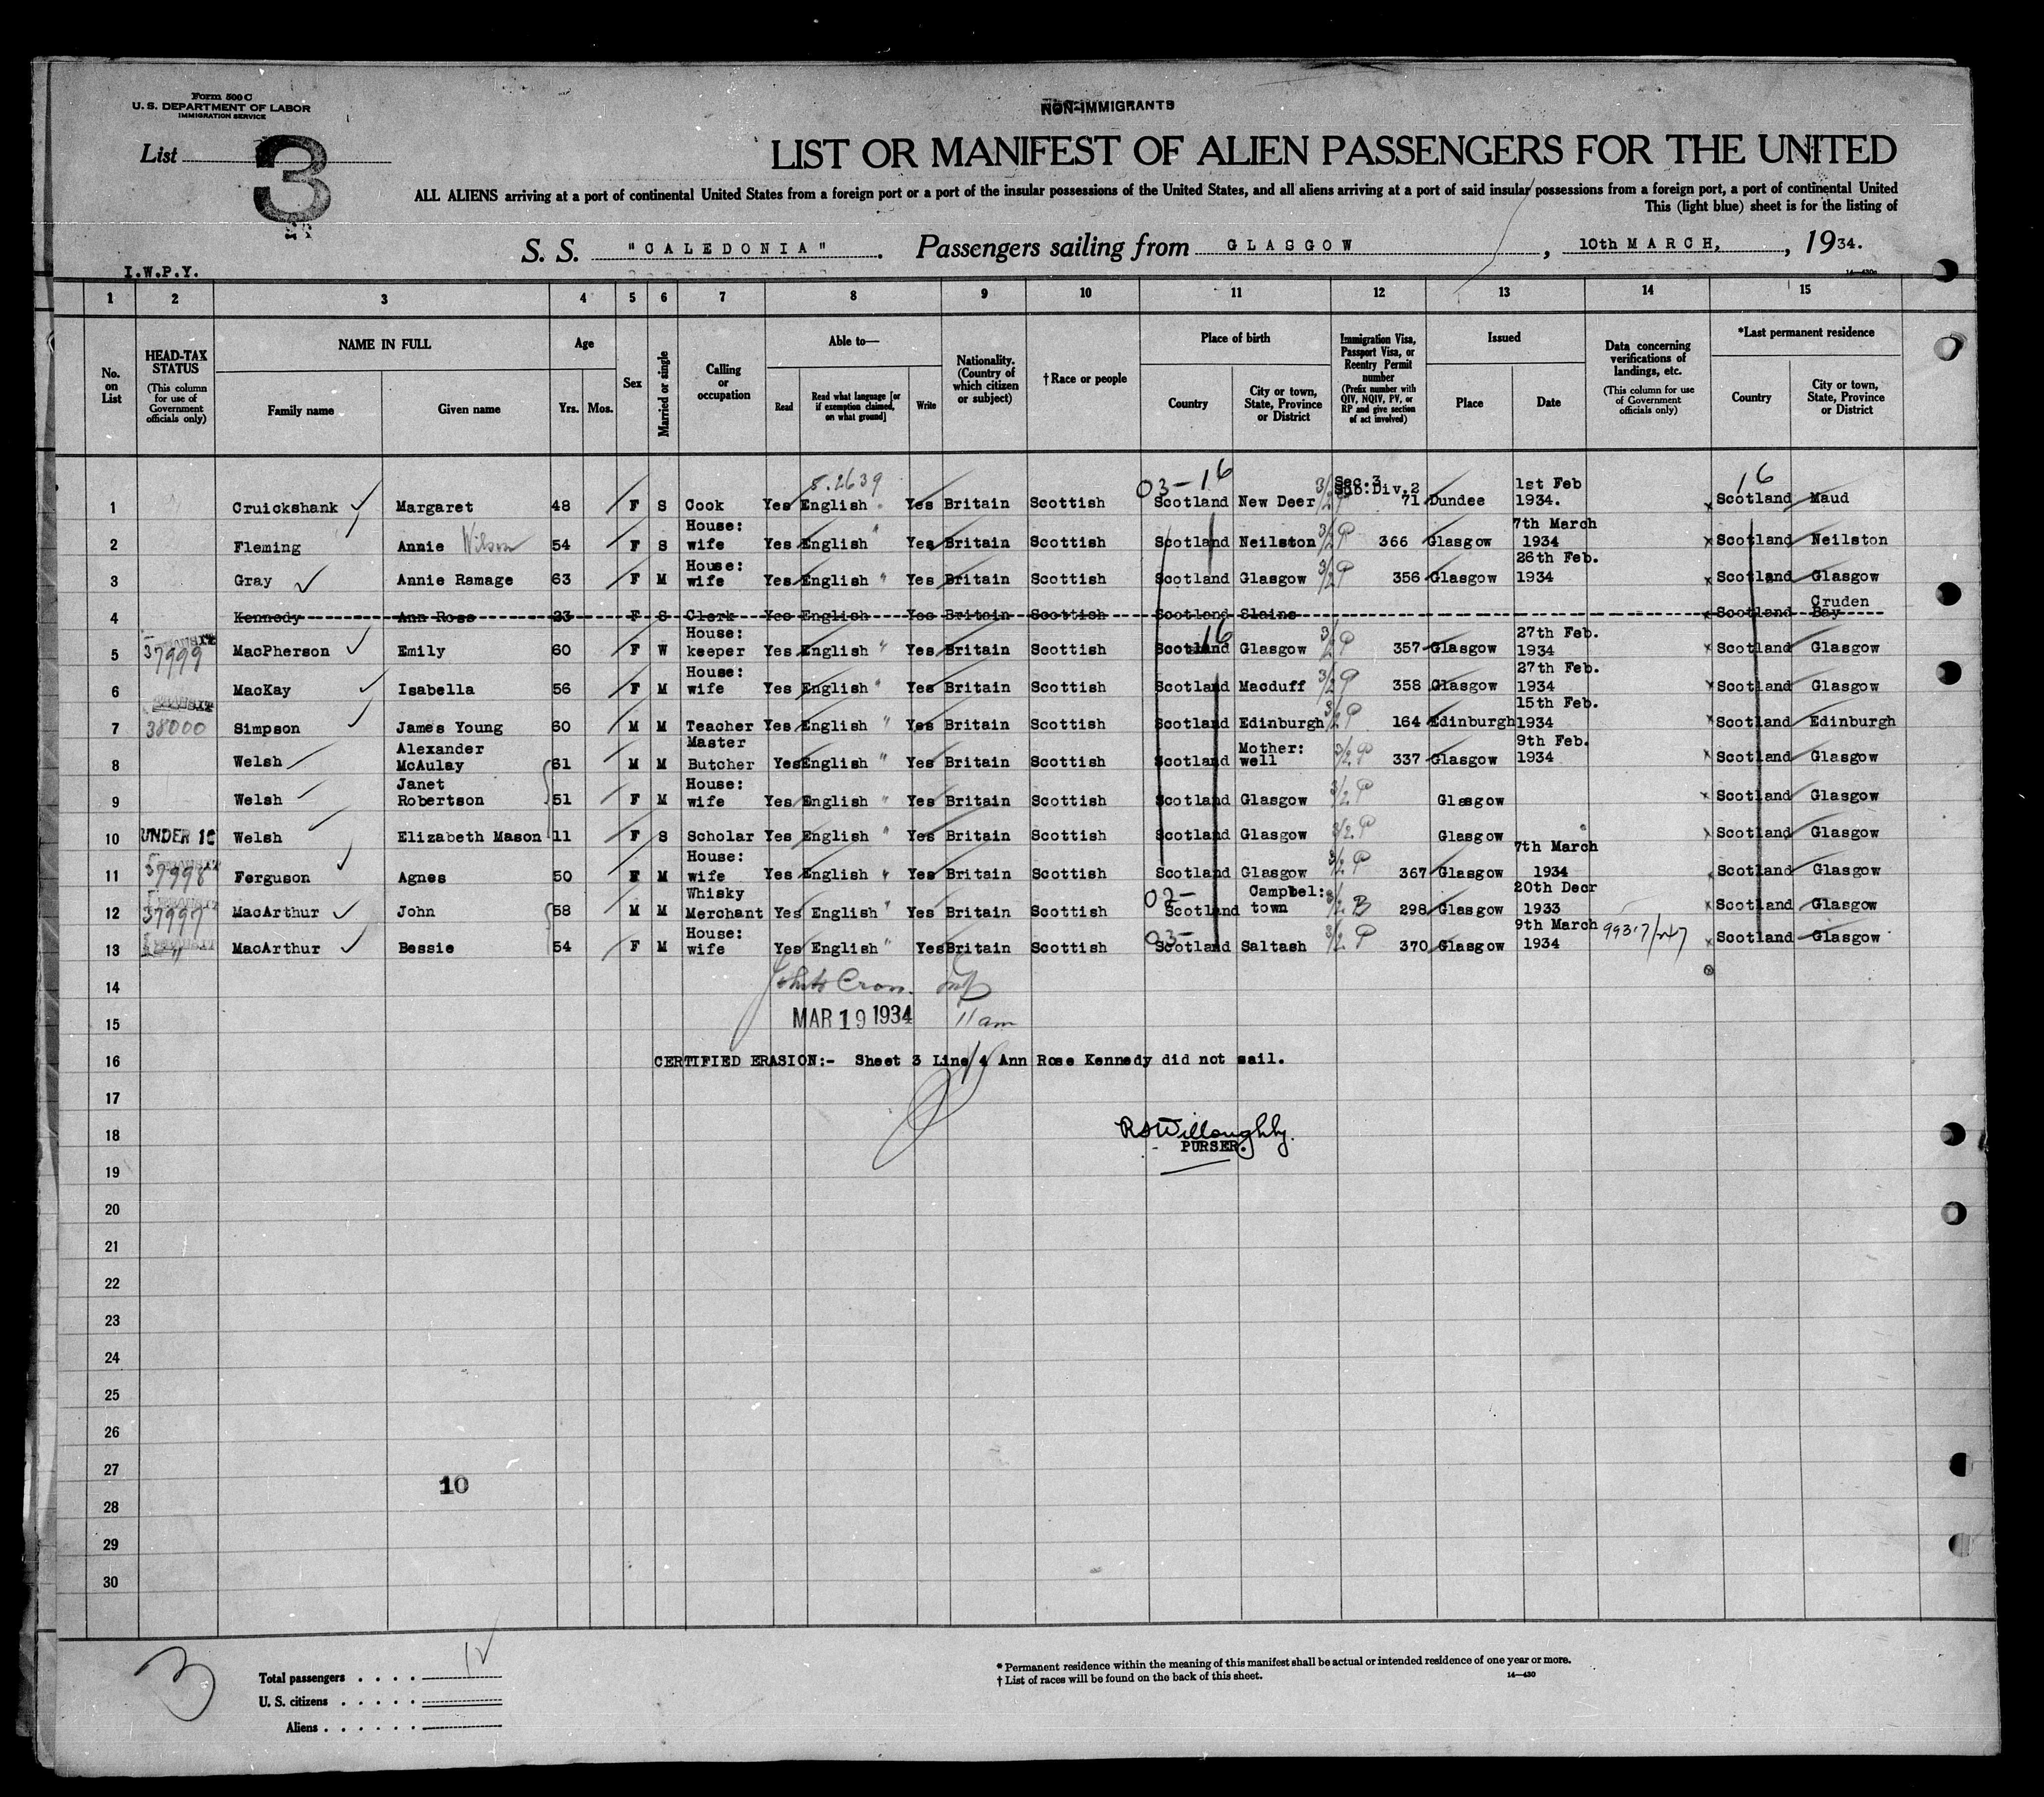 Form 500 C
U. S. DEPARTMENT OF LABOR
IMMIGRATION SERVICE
NON-IMMIGRANTS
List 3
LIST OR MANIFEST OF ALIEN PASSENGERS FOR THE UNITED
ALL ALIENS arriving at a port of continental United States from a foreign port or a port of the insular possessions of the United States, and all aliens arriving at a port of said insular possessions from a foreign port, a port of continental United
This (light blue) sheet is for the listing of
S. S. "CALEDONIA". Passengers sailing from GLASGOW, 10th MARCH, , 1934.
I.W.P.Y.
1 2 3 4 5 6 7 8 9 10 11 12 13 14 15
No. on List
HEAD-TAX STATUS (This column for use of Government officials only)
NAME IN FULL
Family name
Given name
Age
Yrs.
Mos.
Sex
Married or single
Calling or occupation
Able to—
Read
Read what language [or if exemption claimed, on what ground]
Write
Nationality. (Country of which citizen or subject)
†Race or people
Place of birth
Country
City or town, State, Province or District
Immigration Visa, Passport Visa, or Reentry Permit number (Prefix number with QIV, NQIV, PV, or RP and give section of act involved)
Issued
Place
Date
Data concerning verifications of landings, etc. (This column for use of Government officials only)
*Last permanent residence
Country
City or town, State, Province or District
5.2639 03-16 16
1 Cruickshank Margaret 48 F S Cook Yes English Yes Britain Scottish Scotland New Deer 3/2 P Sec.3 Sub.Div.2 71 Dundee 1st Feb 1934. Scotland Maud
2 Fleming Annie Wilson 54 F S House: wife Yes English " Yes Britain Scottish Scotland Neilston 3/2 P 366 Glasgow 7th March 1934 Scotland Neilston
3 Gray Annie Ramage 63 F M House: wife Yes English " Yes Britain Scottish Scotland Glasgow 3/2 P 356 Glasgow 26th Feb. 1934 Scotland Glasgow
4 Kennedy Ann Rose 23 F S Clerk Yes English Yes Britain Scottish Scotland Slains Scotland Cruden Bay
5 37999 MacPherson Emily 60 F W House: keeper Yes English " Yes Britain Scottish 16 Scotland Glasgow 3/2 P 357 Glasgow 27th Feb. 1934 Scotland Glasgow
6 MacKay Isabella 56 F M House: wife Yes English " Yes Britain Scottish Scotland Macduff 3/2 P 358 Glasgow 27th Feb. 1934 Scotland Glasgow
7 TRANSIT 38000 Simpson James Young 60 M M Teacher Yes English " Yes Britain Scottish Scotland Edinburgh 3/2 P 164 Edinburgh 15th Feb. 1934 Scotland Edinburgh
8 Welsh Alexander McAulay 61 M M Master Butcher Yes English " Yes Britain Scottish Scotland Mother: well 3/2 P 337 Glasgow 9th Feb. 1934 Scotland Glasgow
9 Welsh Janet Robertson 51 F M House: wife Yes English " Yes Britain Scottish Scotland Glasgow 3/2 P Glasgow Scotland Glasgow
10 UNDER 16 Welsh Elizabeth Mason 11 F S Scholar Yes English " Yes Britain Scottish Scotland Glasgow 3/2 P Glasgow Scotland Glasgow
11 37998 Ferguson Agnes 50 F M House: wife Yes English " Yes Britain Scottish Scotland Glasgow 3/2 P 367 Glasgow 7th March 1934 Scotland Glasgow
12 37997 MacArthur John 58 M M Whisky Merchant Yes English " Yes Britain Scottish 02- Scotland Campbel: town 3/2 B 298 Glasgow 20th Decr 1933 Scotland Glasgow
13 " MacArthur Bessie 54 F M House: wife Yes English " Yes Britain Scottish 03- Scotland Saltash 3/2 P 370 Glasgow 9th March 1934 Scotland Glasgow
14
15 MAR 19 1934 11 am
16 CERTIFIED ERASION:- Sheet 3 Line 4 Ann Rose Kennedy did not sail.
17
18 Willoughby.
PURSER.
19
20
21
22
23
24
25
26
27
10
28
29
30
3
Total passengers . . . . 12
U. S. citizens . . . . .
Aliens . . . . . .
* Permanent residence within the meaning of this manifest shall be actual or intended residence of one year or more.
† List of races will be found on the back of this sheet.
14—430